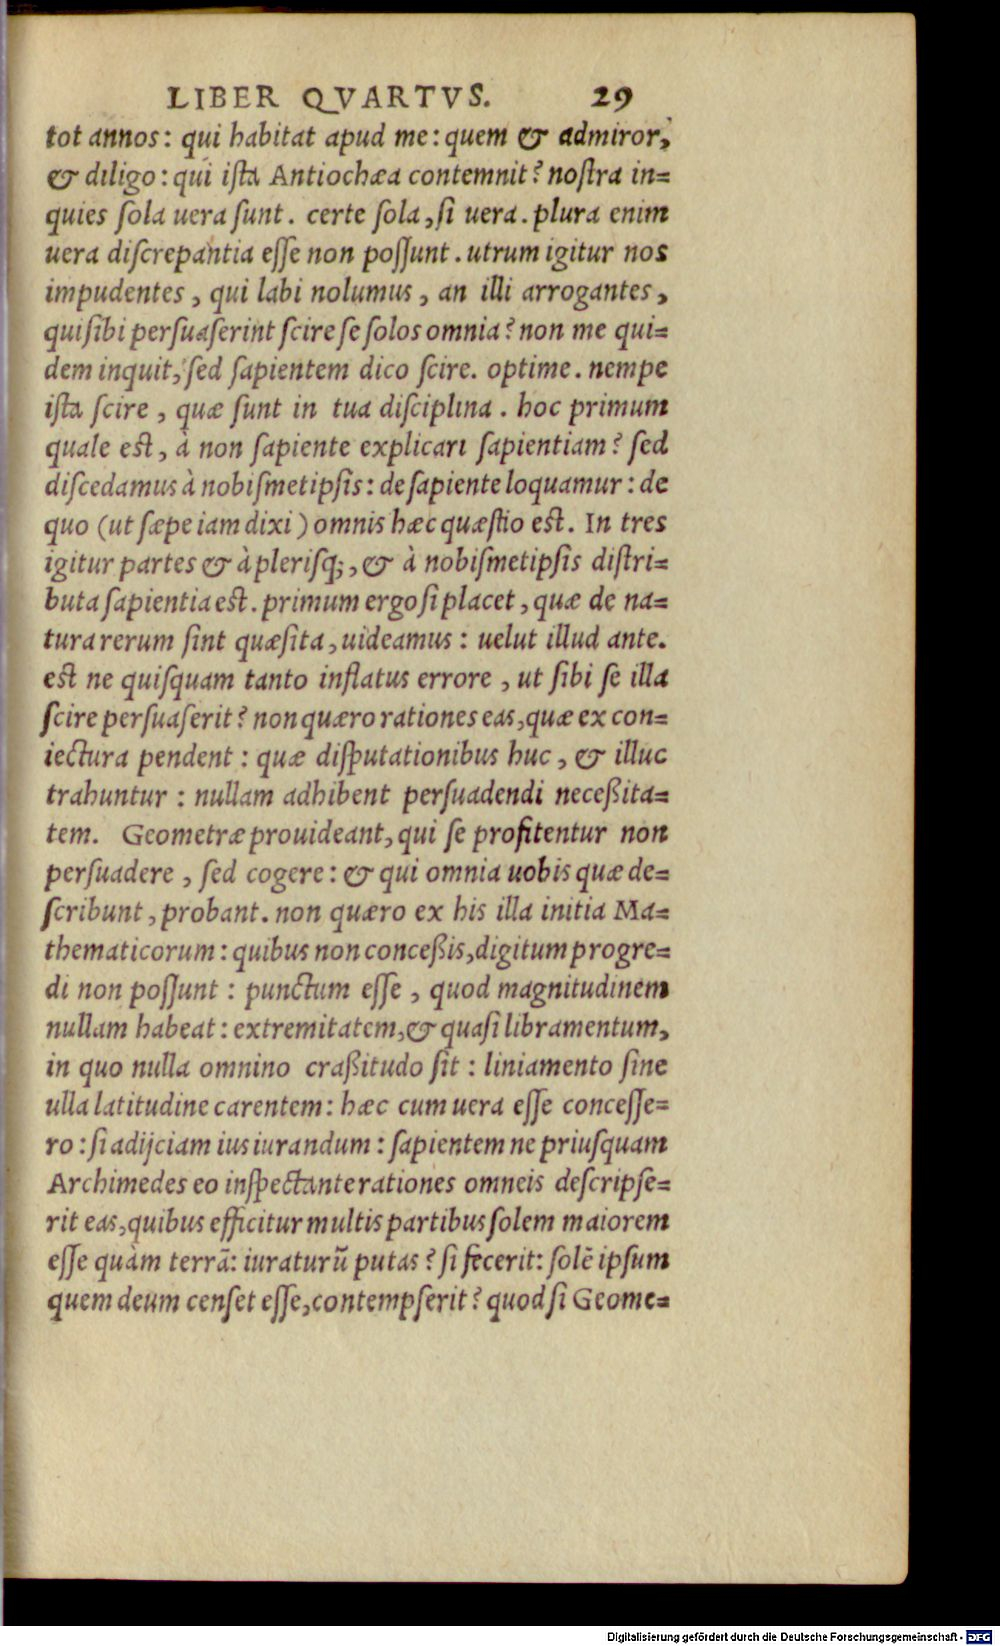 LIBER QVARTVS. 29
tot annos: qui habitat apud me: quem & admiror,
& diligo: qui iſta Antiochæa contemnit? noſtra in=
quies ſola uera ſunt. certe ſola, ſi uera. plura enim
uera diſcrepantia eſſe non poſſunt. utrum igitur nos
impudentes, qui labi nolumus, an illi arrogantes,
qui ſibi perſuaſerint ſcire ſe ſolos omnia? non me qui=
dem inquit, ſed ſapientem dico ſcire. optime. nempe
iſta ſcire, quæ ſunt in tua diſciplina. hoc primum
quale eſt, à non ſapiente explicari ſapientiam? ſed
diſcedamus à nobiſmetipſis: de ſapiente loquamur: de
quo (ut ſæpe iam dixi) omnis hæc quæſtio eſt. In tres
igitur partes & à pleriſq;, & à nobiſmetipſis diſtri=
buta ſapientia eſt. primum ergo ſi placet, quæ de na=
tura rerum ſint quæſita, uideamus: uelut illud ante.
eſt ne quiſquam tanto inflatus errore, ut ſibi ſe illa
ſcire perſuaſerit? non quæro rationes eas, quæ ex con=
iectura pendent: quæ diſputationibus huc, & illuc
trahuntur: nullam adhibent perſuadendi neceßita=
tem. Geometræ prouideant, qui ſe profitentur non
perſuadere, ſed cogere: & qui omnia uobis quæ de=
ſcribunt, probant. non quæro ex his illa initia Ma=
thematicorum: quibus non conceßis, digitum progre=
di non poſſunt: punctum eſſe, quod magnitudinem
nullam habeat: extremitatem, & quaſi libramentum,
in quo nulla omnino craßitudo ſit: liniamento ſine
ulla latitudine carentem: hæc cum uera eſſe conceſſe=
ro: ſi adijciam ius iurandum: ſapientem ne priuſquam
Archimedes eo inſpectante rationes omneis deſcripſe=
rit eas, quibus efficitur multis partibus ſolem maiorem
eſſe quàm terrã: iuraturũ putas? ſi fecerit: ſolẽ ipſum
quem deum cenſet eſſe, contempſerit? quod ſi Geome=
Digitalisierung gefördert durch die Deutsche Forschungsgemeinschaft - DFG